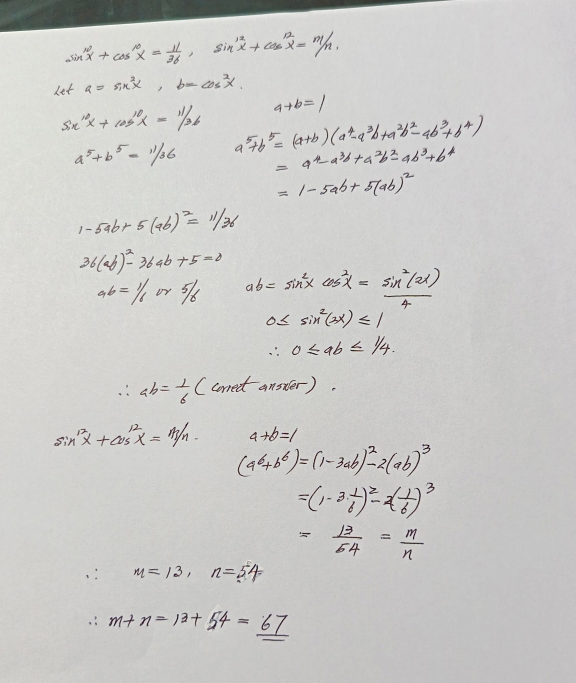 sin¹⁰x + cos¹⁰x = 11/36 , sin¹²x + cos¹²x = m/n.
Let a = sin²x , b = cos²x.
a+b=1
sin¹⁰x + cos¹⁰x = 11/36
a⁵+b⁵ = 11/36
a⁵+b⁵ = (a+b)(a⁴-a³b+a²b²-ab³+b⁴)
= a⁴-a³b+a²b²-ab³+b⁴
= 1-5ab+5(ab)²
1-5ab+5(ab)² = 11/36
36(ab)²-36ab+5=0
ab = 1/6 or 5/6
ab = sin²x cos²x = sin²(2x)/4
0 ≤ sin²(2x) ≤ 1
∴ 0 ≤ ab ≤ 1/4.
∴ ab = 1/6 (correct answer) .
sin¹²x + cos¹²x = m/n.
a+b=1
(a⁶+b⁶)=(1-3ab)²-2(ab)³
=(1-3·1/6)²-2(1/6)³
= 13/54 = m/n
∴ m = 13, n = 54
∴ m+n = 13+54 = 67